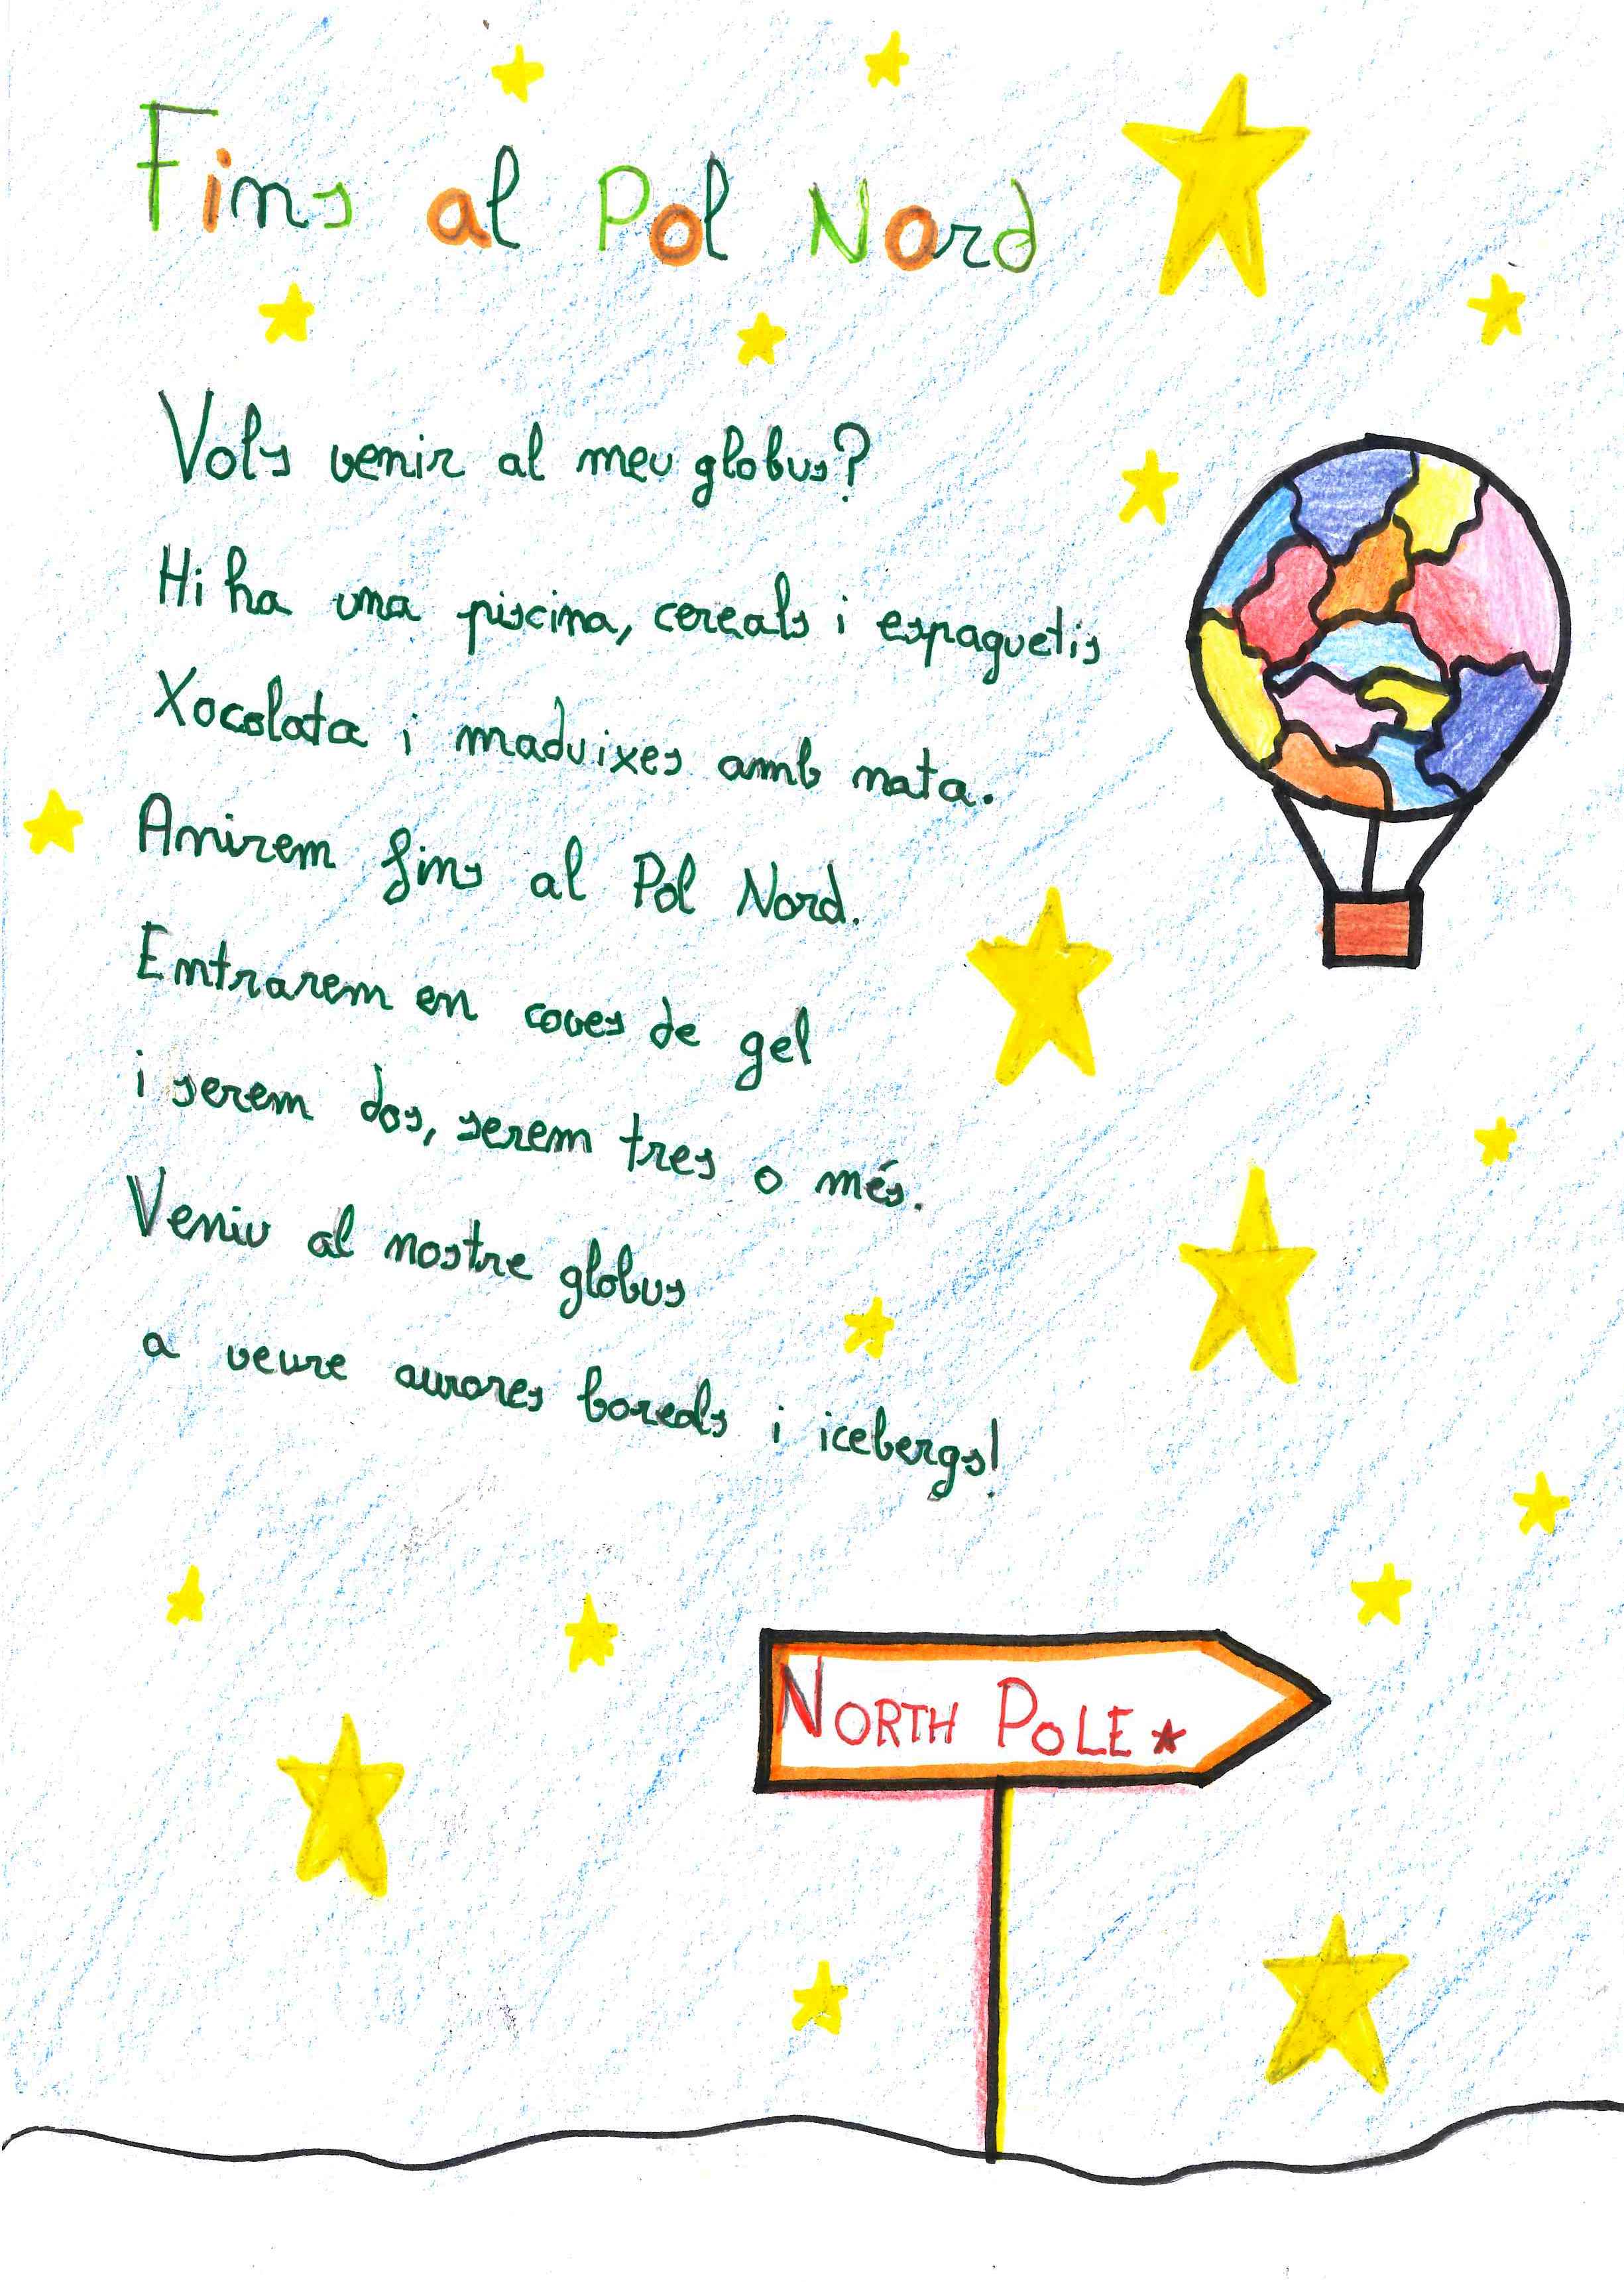 Fins al Pol Nord
Vols venir al meu globus?
Hi ha una piscina, cereals i espaguetis
Xocolata i maduixes amb nata.
Anirem fins al Pol Nord.
Entrarem en coves de gel
i serem dos, serem tres o més.
Veniu al nostre globus
a veure aurores boreals i icebergs!
NORTH POLE